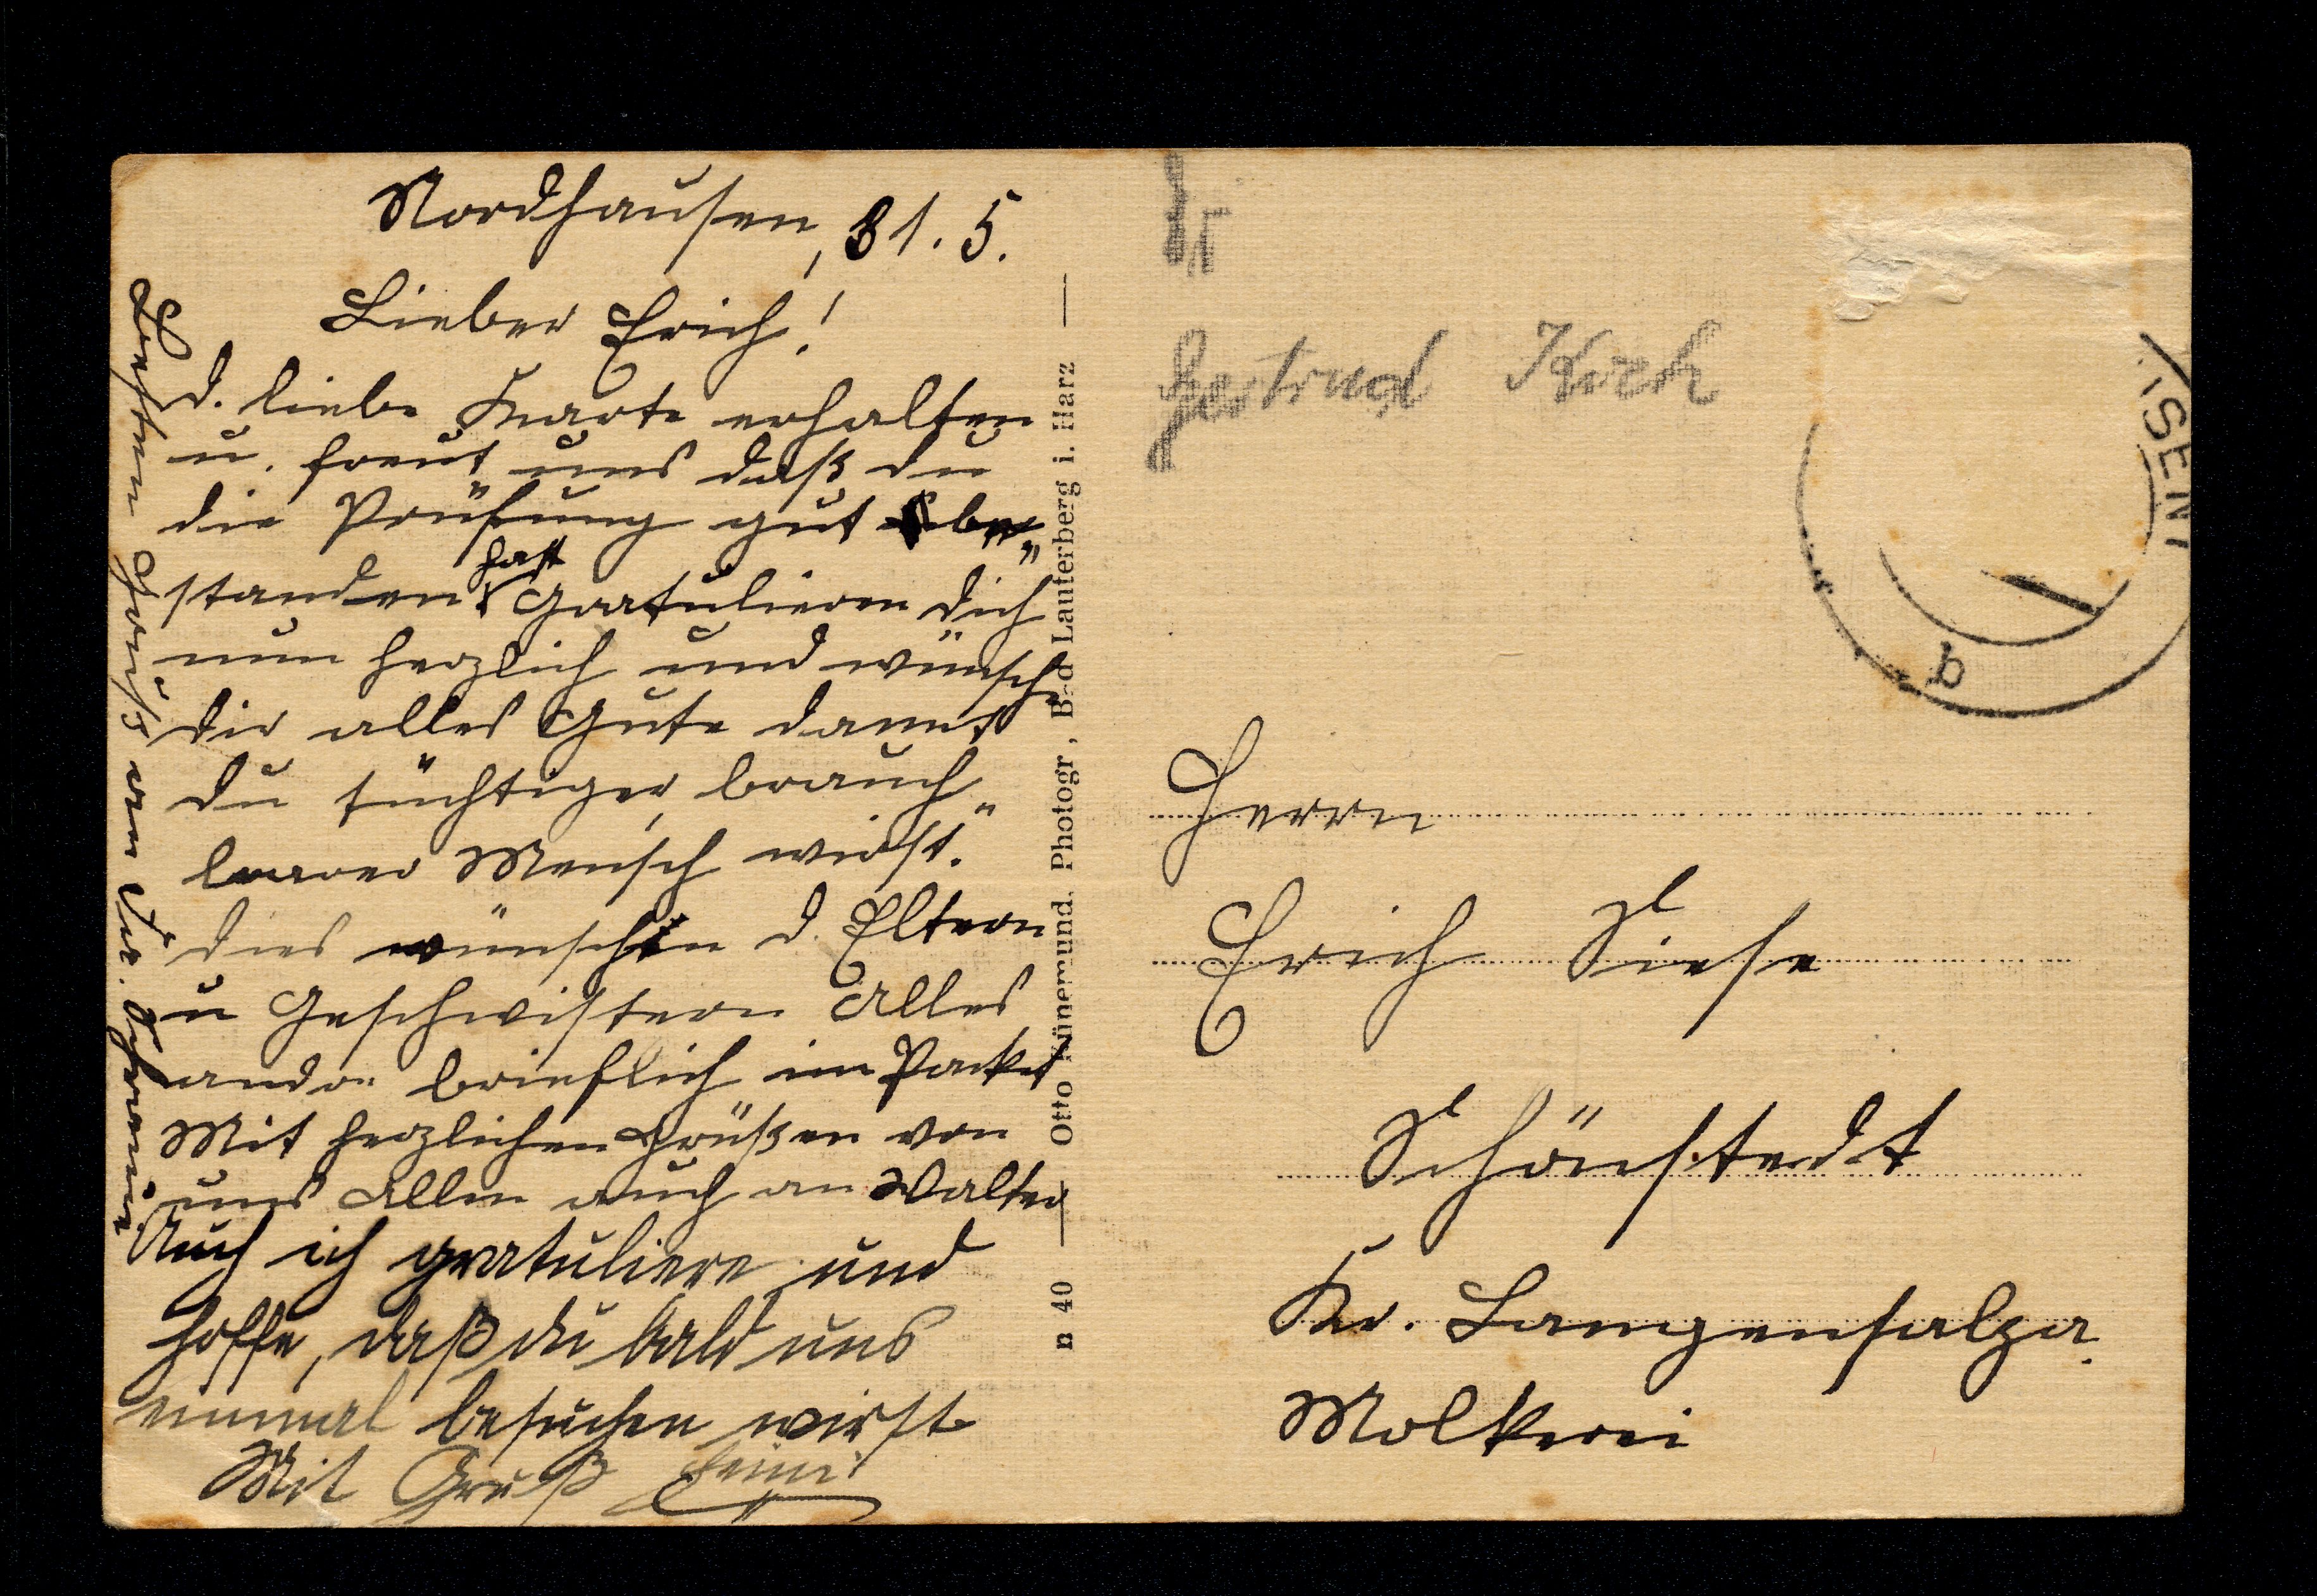 Nordhausen, 31. 5.
Lieber Erich!
d. liebe Karte erhalten
u. freut uns daß du
die Prüfung gut be„
standen hast Gratulieren dich
nun herzlich und wünsche
dir alles Gute damit
du tüchtiger, brauch„
barer Mensch wirst.
dies wünschen d. Eltern
u Geschwistern Alles
andre brieflich im Packet
Mit herzlichen Grüßen von
uns Allen auch an Walter
Auch ich gratuliere und
hoffe, daß du bald uns
einmal besuchen wirst
Mit Gruß
Besten Gruß von
n 40 — Otto Künemund. Photogr., Bad Lauterberg i. Harz —
Gertrud Koch
b
Herrn
Erich Siese
Schönstedt
Kr. Langensalza
Molkerei